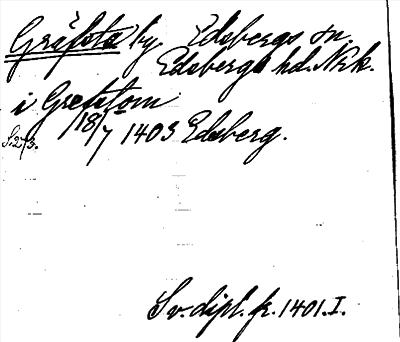 Gräfsta by. Edsbergs sn.
Edsbergs hd. Nrk.
i Grefstom
18/7 1403 Edsberg.
S. 273.
Sv. dipl. fr. 1401. I.